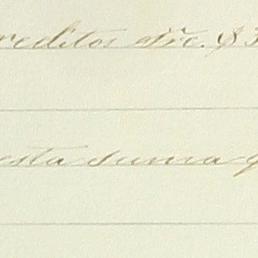 reditos etc. $3
esta suma q